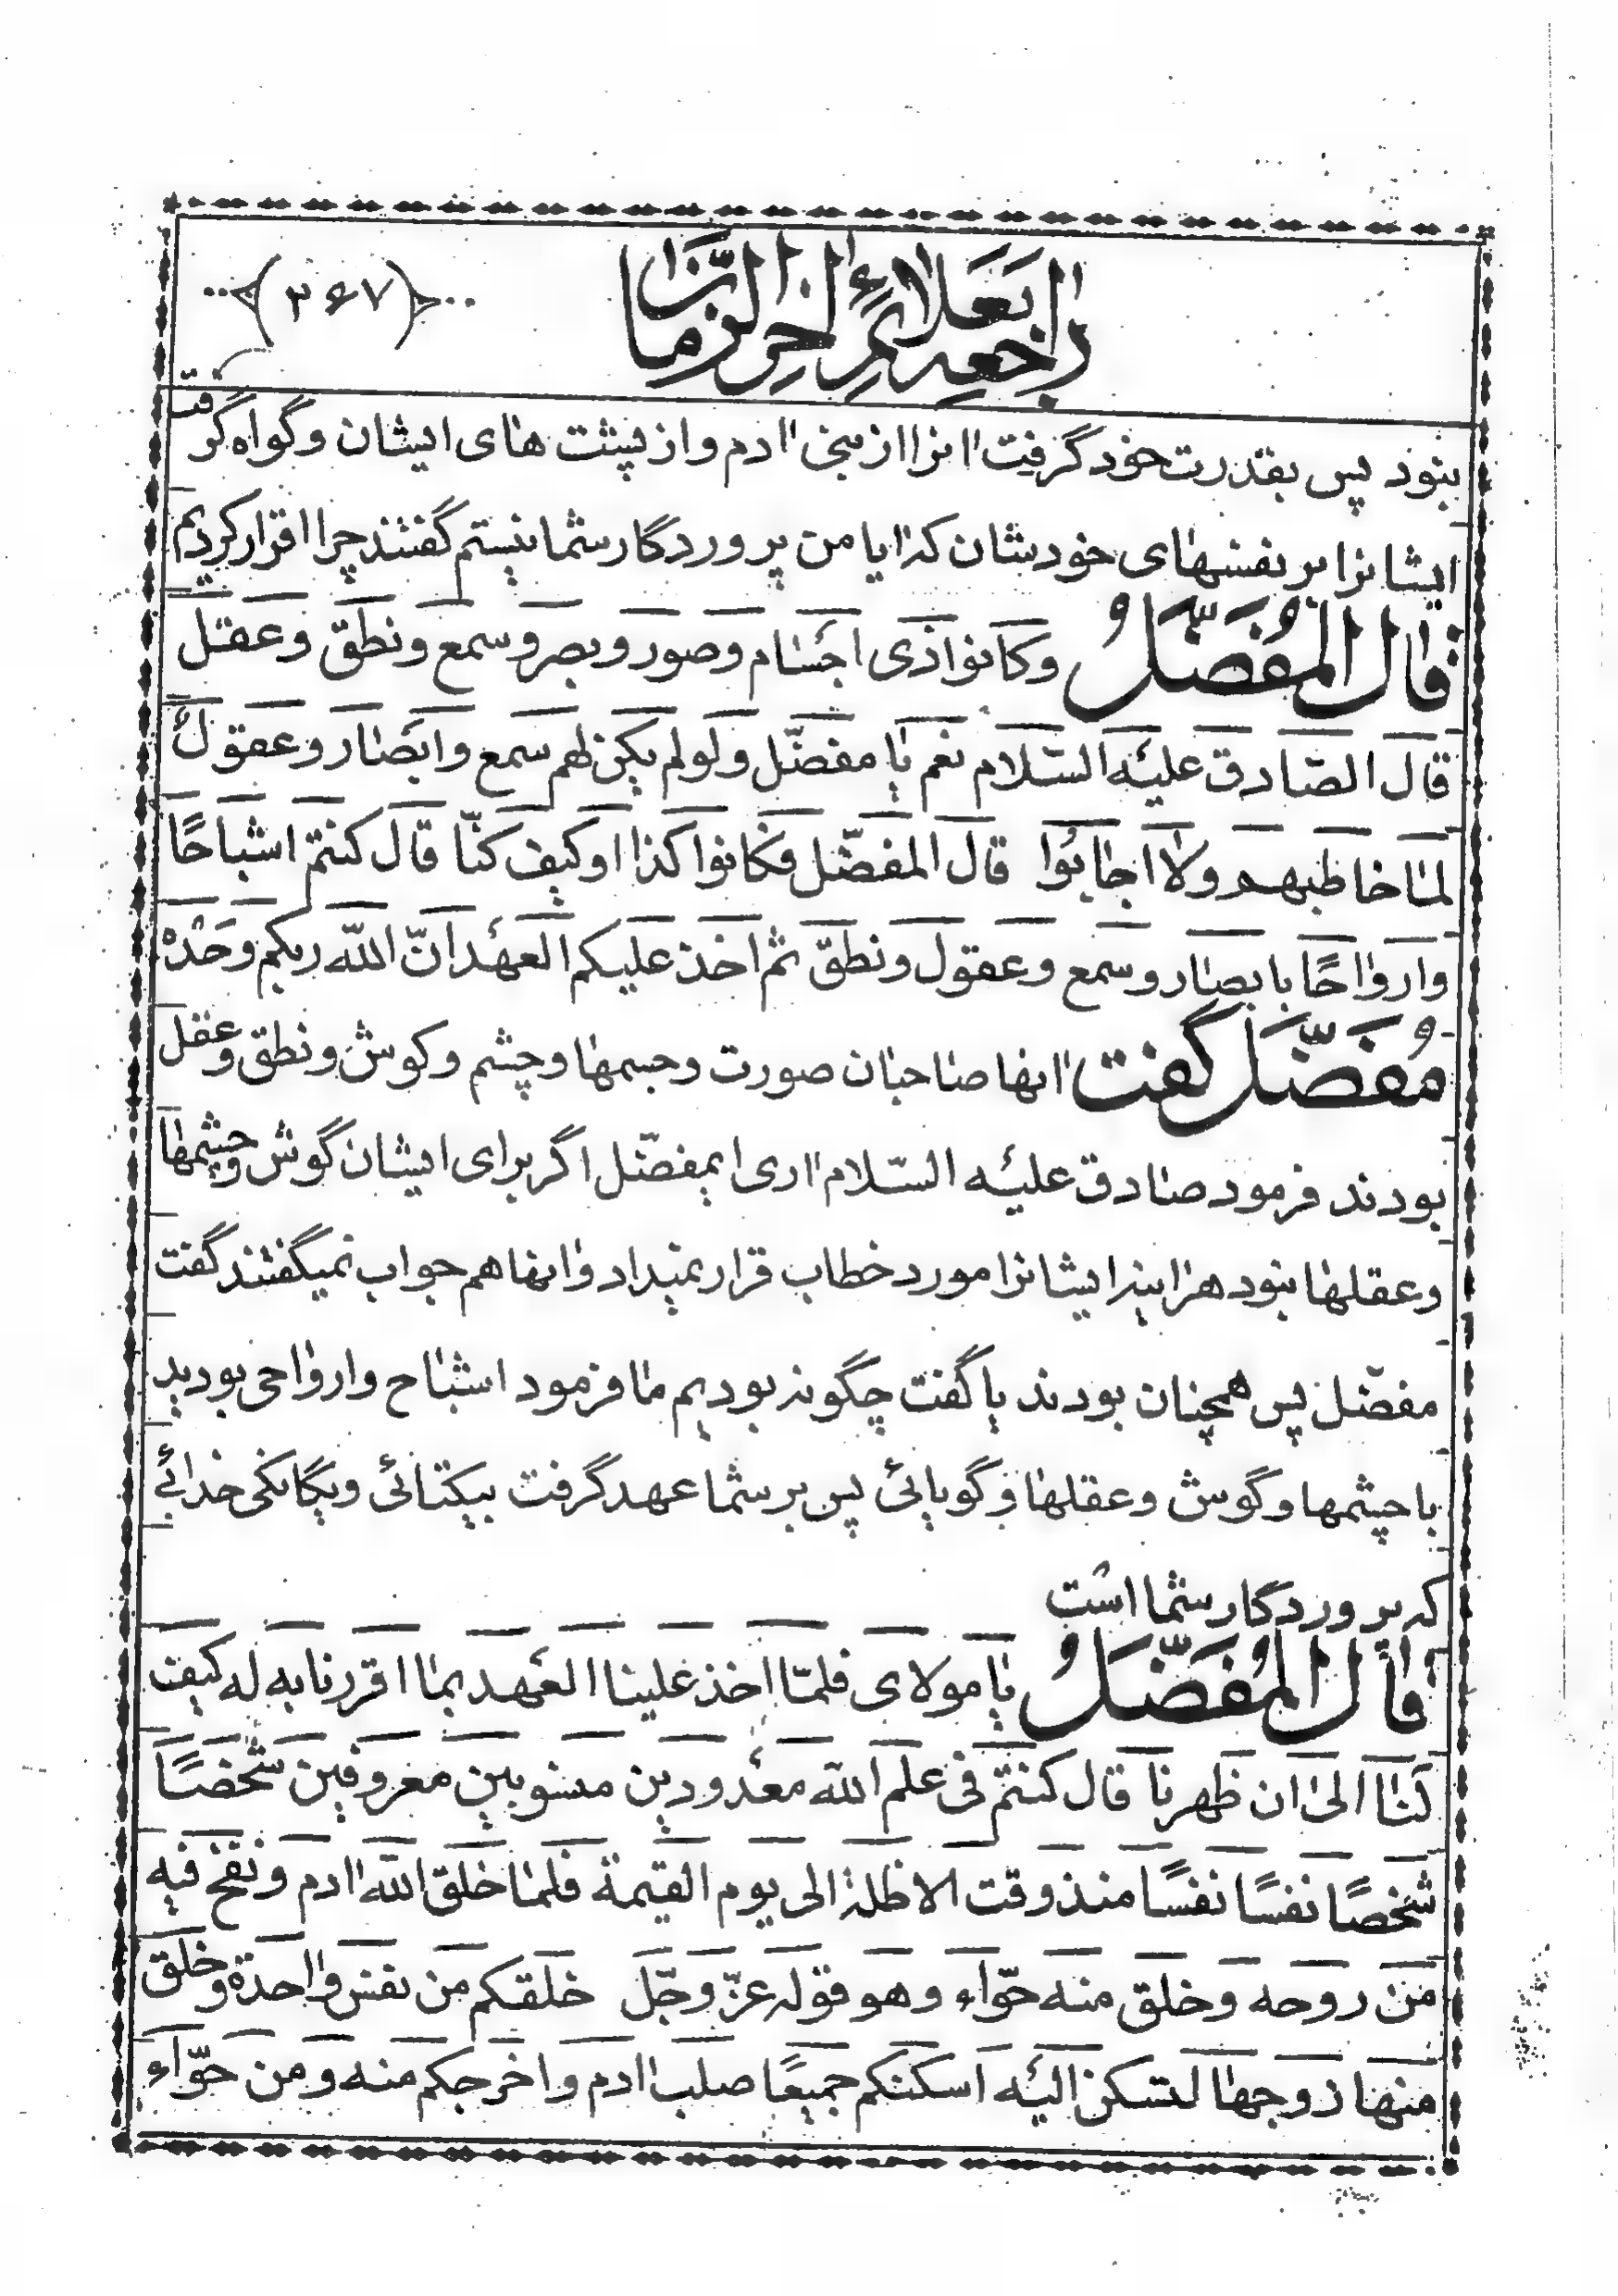 راجعه بعلائم اخر الزمان
(۳۶۷)
نبود پس بقدرت خود گرفت انرا از بنی ادم و از پشت های ایشان و گواه گرفت
ایشانرا بر نفسهای خودشان که ایا من پروردگار شما نیستم گفتند چرا اقرار کردیم
قال المُفَضَّلُ وکانوا ذی اجسام وصور وبصر وسمع ونطق وعقل
قال الصّادق علیه السّلام نعم یا مفضّل ولو لم یکن لهم سمع وابصار وعقول
لما خاطبهم ولا اجابوا قال المفضّل فکانوا کذا او کیف کنّا قال کنتم اشباحًا
وارواحًا بابصار وسمع وعقول ونطق ثم اخذ علیکم العهد انّ اللّه ربکم وحده
مُفَضَّل گفت انها صاحبان صورت وجسمها وچشم وکوش ونطق وعقل
بودند فرمود صادق علیه السّلام اری ایمفضّل اگر برای ایشان گوش وچشمها
وعقلها نبود هراینه ایشانرا مورد خطاب قرار نمیداد وانها هم جواب نمیگفتند گفت
مفضّل پس همچنان بودند یا گفت چگونه بودیم ما فرمود اشباح وارواحی بودید
با چشمها وگوش وعقلها وگویائی پس بر شما عهد گرفت بیکتائی ویگانگی خدائی
که پروردگار شما است
قال المُفَضَّلُ یا مولای فلمّا اخذ علینا العهد بما اقررنا به له کیف
کنا الی ان ظهرنا قال کنتم فی علم اللّه معدودین منسوبین معروفین شخصًا
شخصًا نفسًا نفسًا منذ وقت الاظلة الی یوم القیمة فلما خلق اللّه ادم ونفخ فیه
من روحه وخلق منه حوّاء وهو قوله عزّ وجّل خلقکم من نفس واحدة وخلق
منها زوجها لتسکن الیه اسکنکم جمیعًا صلب ادم واخرجکم منه ومن حوّاء